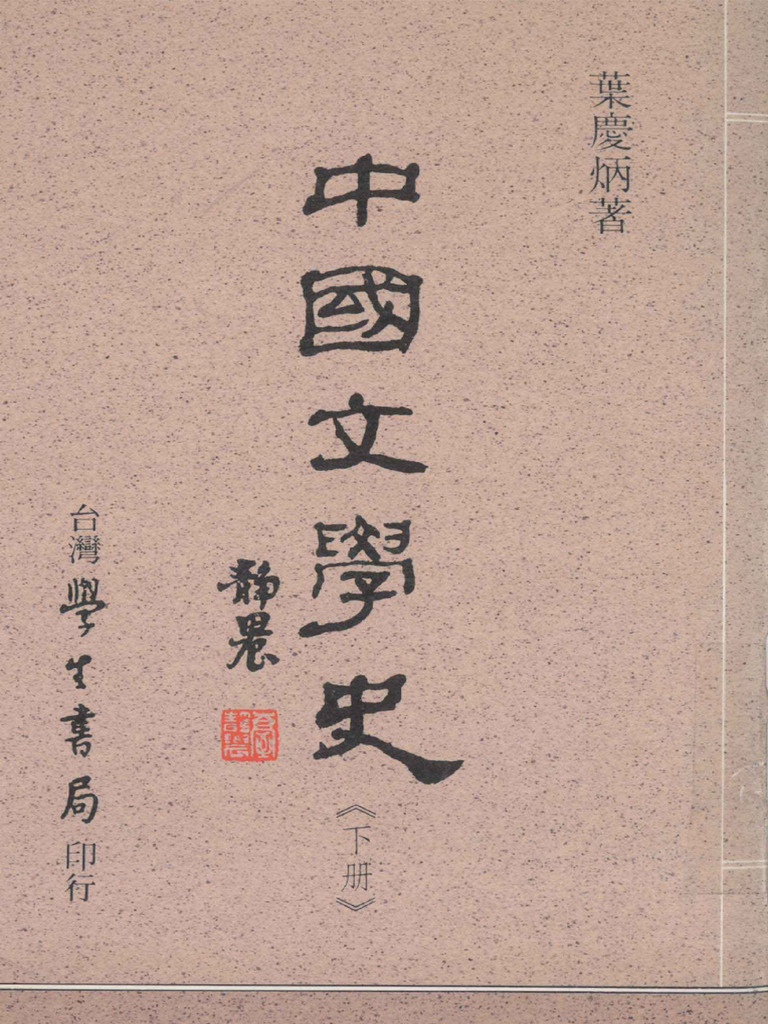 葉慶炳著
中國文學史
《下册》
靜農
台靜農
台灣學生書局印行